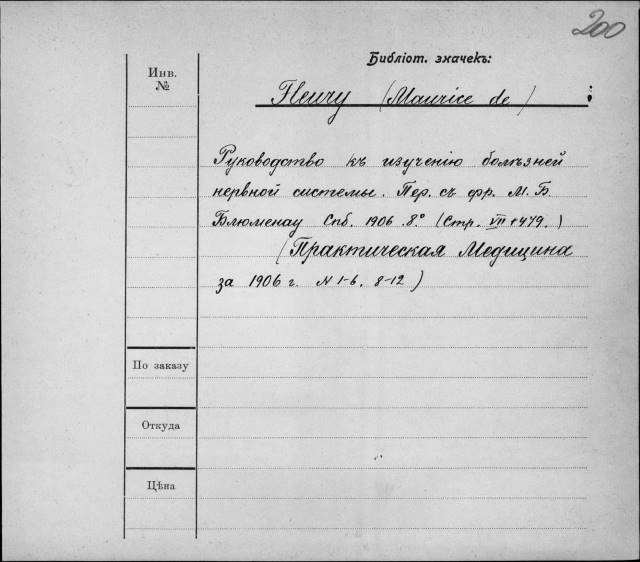 200
Библіот. значекъ:
Инв.
№
Fleury (Maurice de)
Руководство къ изученію болѣзней
нервной системы. Пер. съ фр. М. Б.
Блюменау Спб. 1906. 8.° (Стр. VII + 479.)
(Практическая Медицина
за 1906 г. N 1-6. 8-12)
По заказу
Откуда
Цѣна